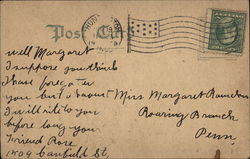 Post Card
well Margaret
I suppose you think
I have forgotten
you but I haven't
I will write to you
before long you
Friend Rose
1409 Garfield St,
Miss Margaret
Roaring Branch
Penn.